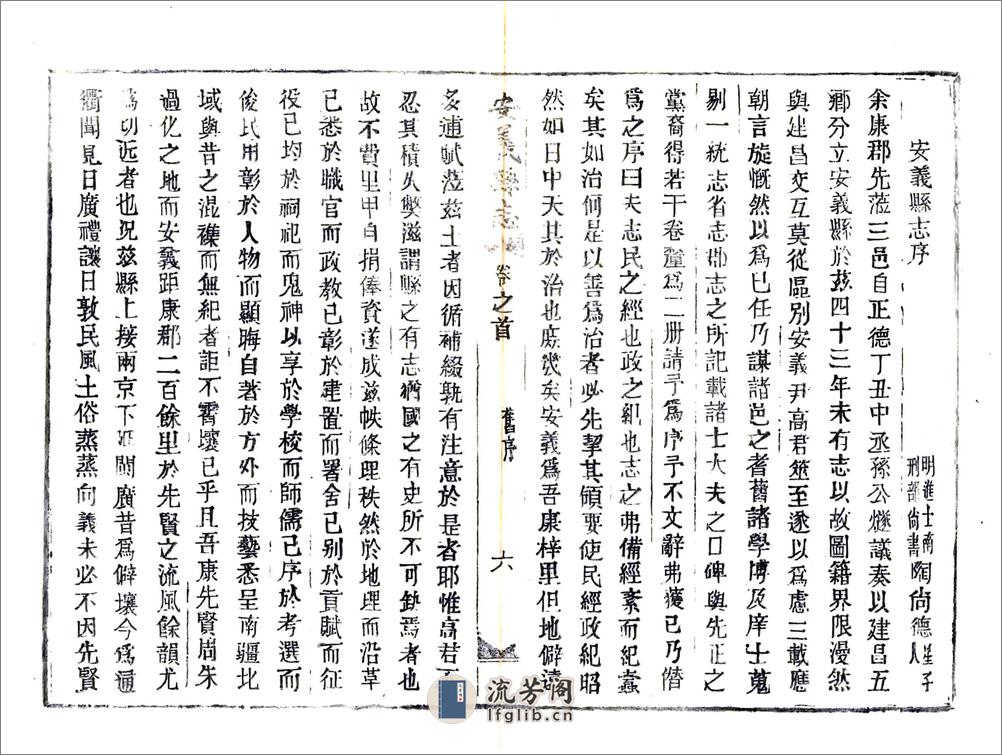 安義縣志序
明進士南
刑部尚書陶尚德星子人
余康郡先蒞三邑自正德丁丑中丞孫公燧議奏以建昌五
鄉分立安義縣於茲四十三年未有志以故圖籍界限漫然
與建昌交互莫從區別安義尹高君筮至遂以為慮三載應
朝言旋慨然以為已任乃謀諸邑之耆舊諸學博及庠士蒐
剔一統志省志郡志之所記載諸士大夫之口碑與先正之
黨裔得若干卷釐為二册請予為序予不文辭弗獲已乃僭
為之序曰夫志民之經也政之紀也志之弗備經紊而紀蠹
矣其如治何是以善為治者必先挈其領要使民經政紀昭
然如日中天其於治也庶幾矣安義為吾康梓里但地僻遠
安義縣志
卷之首
舊序
六
多逋賦蒞茲土者因循補綴孰有注意於是者耶惟高君不
忍其積久弊滋謂縣之有志猶國之有史所不可缺焉者也
故不費里甲自捐俸資遂成茲帙條理秩然於地理而沿革
已悉於職官而政教已彰於建置而署舍已別於貢賦而征
役已均於祠祀而鬼神以享於學校而師儒已序於考選而
俊民用彰於人物而顯晦自著於方外而技藝悉呈南疆北
域與昔之混襍而無紀者詎不霄壤已乎且吾康先賢周朱
過化之地而安義距康郡二百餘里於先賢之流風餘韻尤
為切近者也況茲縣上接兩京下通閩廣昔為僻壤今為通
衢聞見日廣禮讓日敦民風土俗蒸蒸向義未必不因先賢
流芳阁
lfglib.cn